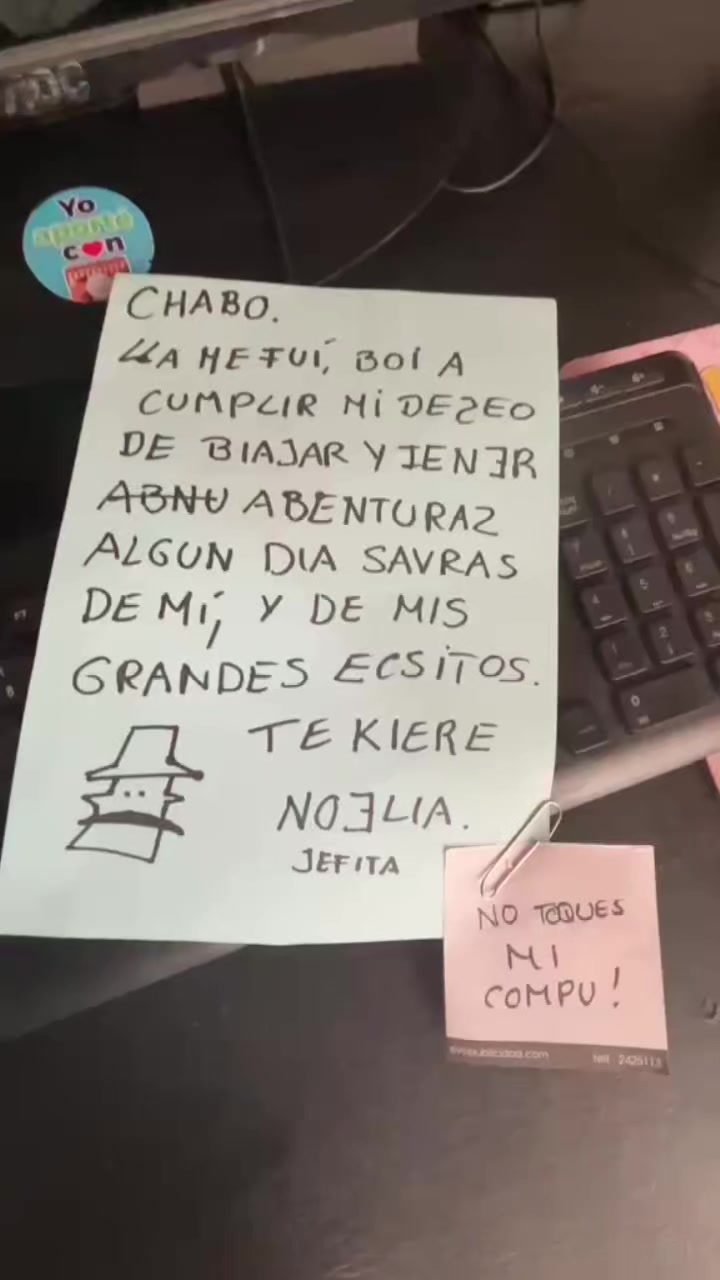 Yo
aporté
con
CHABO.
LLA ME FUÍ, BOI A
CUMPLIR MI DEZEO
DE BIAJAR Y TENER
ABNU ABENTURAZ
ALGUN DIA SAVRAS
DE MÍ, Y DE MIS
GRANDES ECSITOS.
TE KIERE
NOELIA.
JEFITA
NO TOQUES
MI
COMPU!